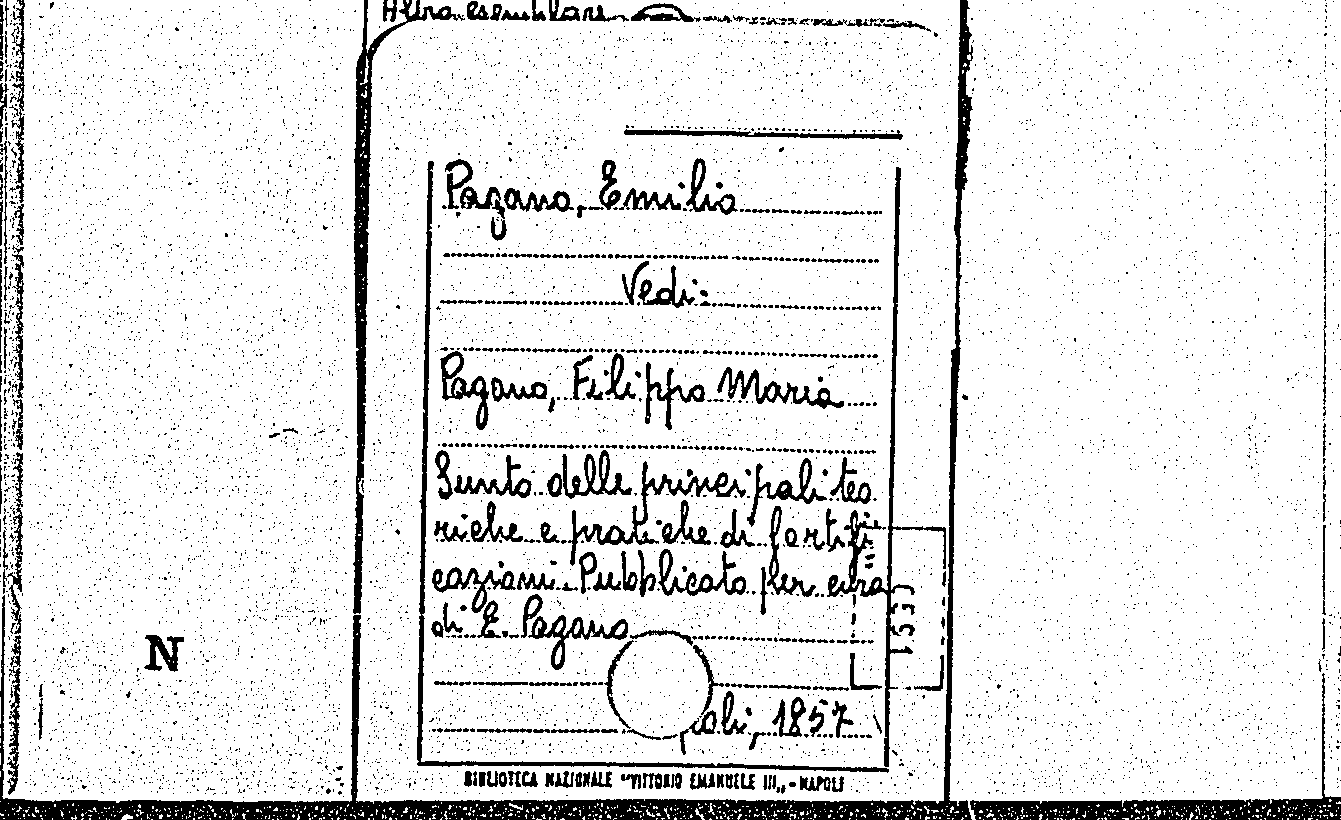 Altro esemplare
Pagano, Emilio
Vedi:
Pagano, Filippo Maria
Sunto delle principali teo
riche e pratiche di fortifi
cazioni. Pubblicato per cura
di E. Pagano
poli, 1857
N
BIBLIOTECA NAZIONALE "VITTORIO EMANUELE III„ - NAPOLI